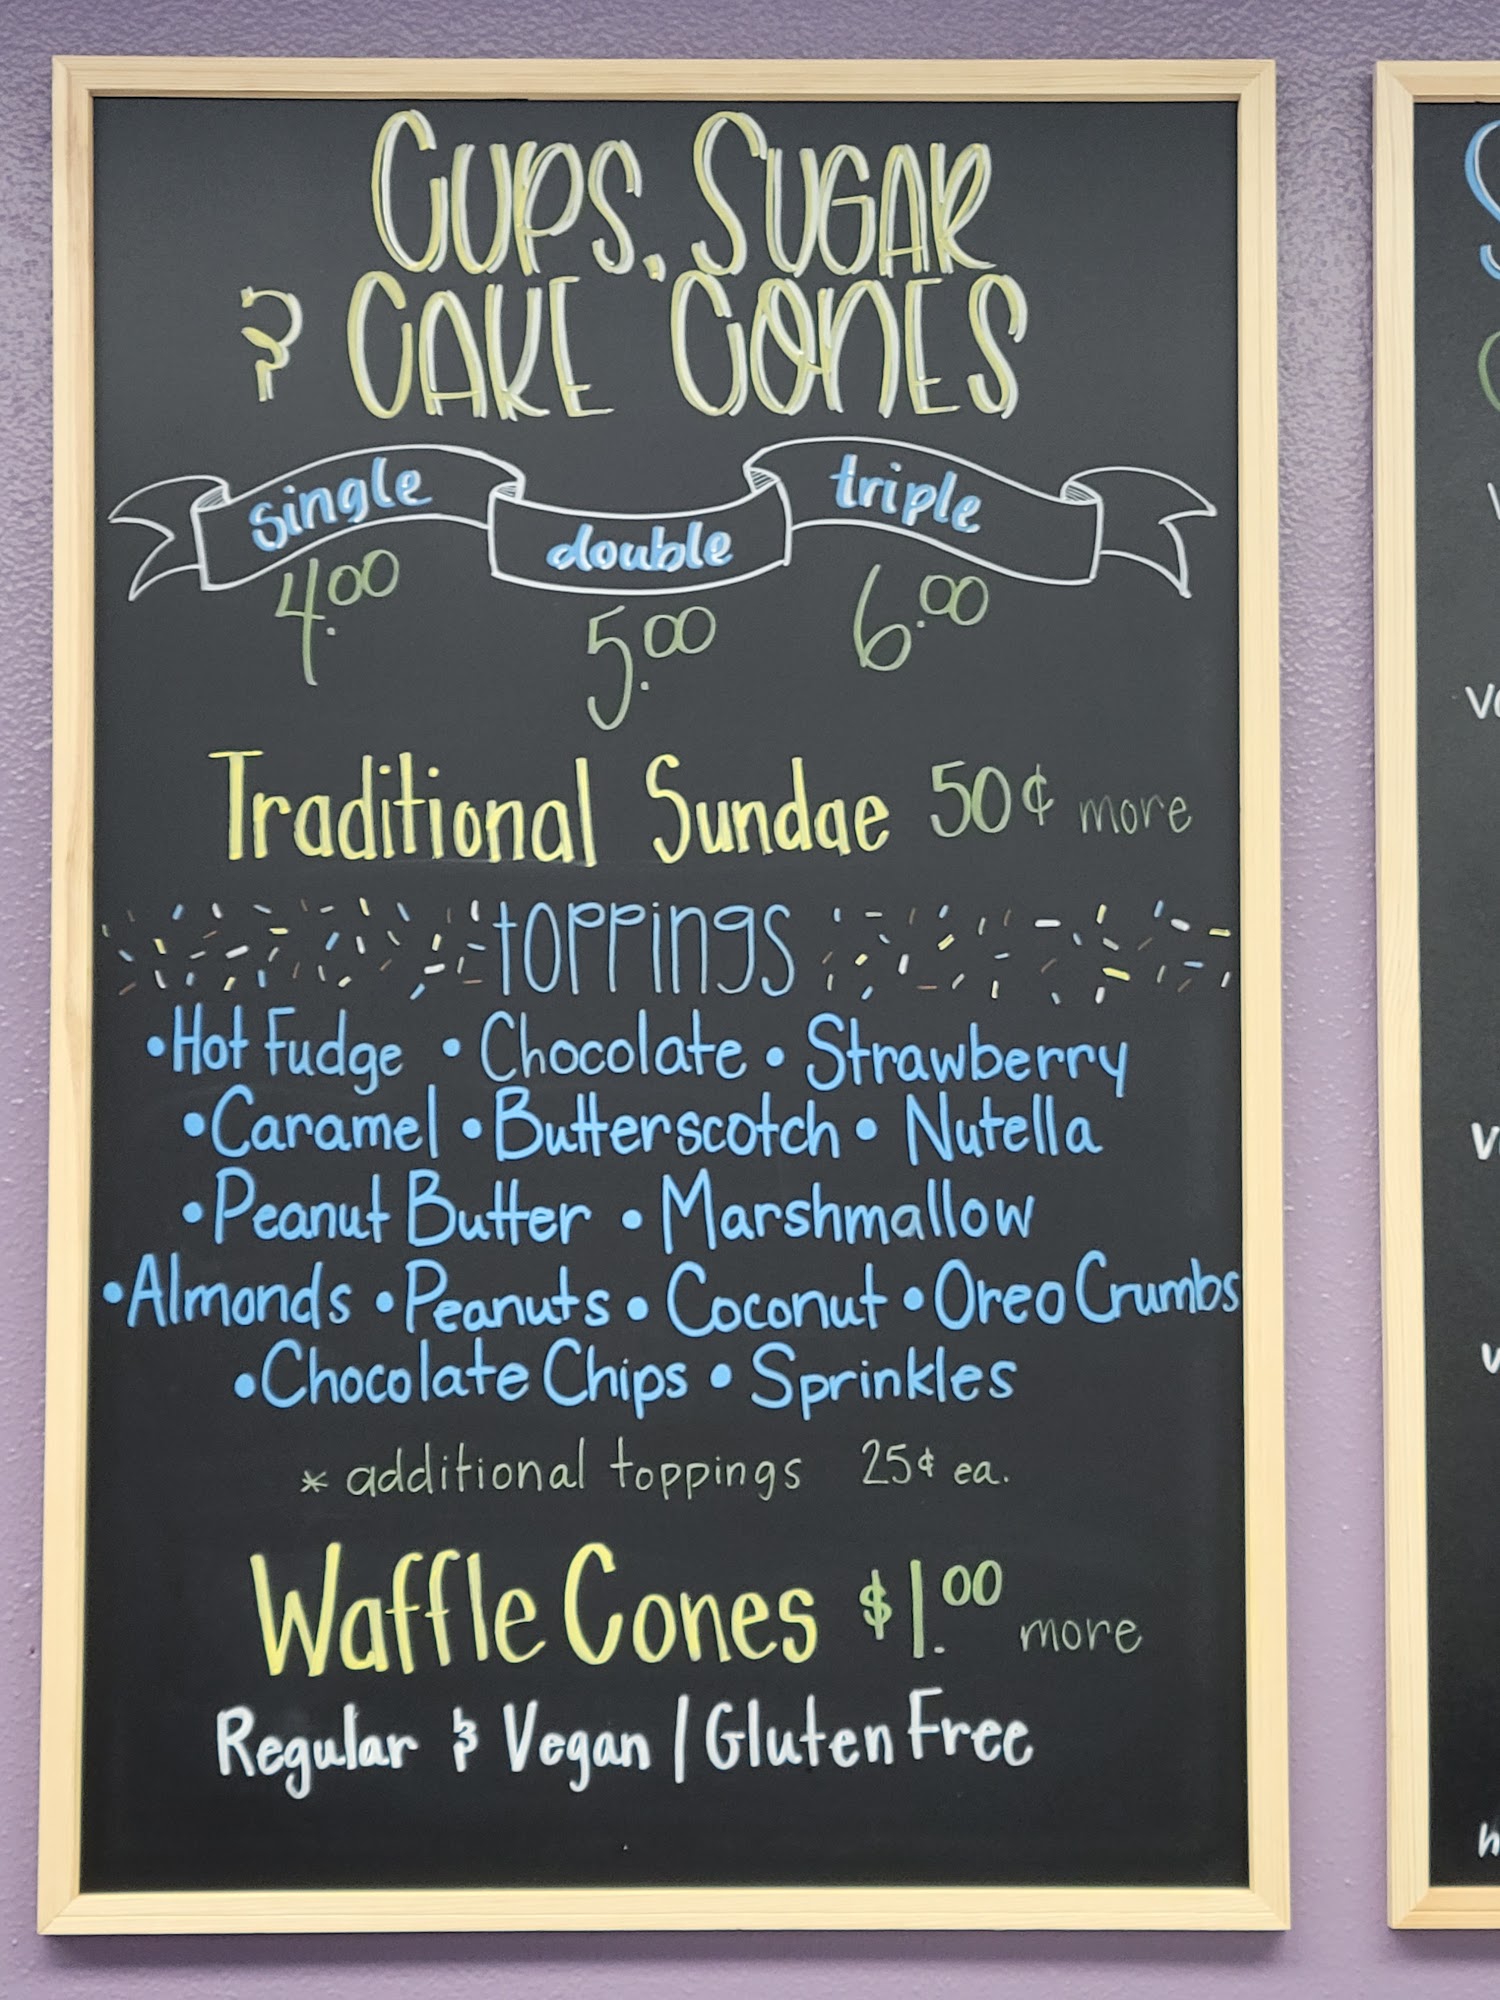 CUPS, SUGAR
& CAKE CONES
single double triple
4.00 5.00 6.00
Traditional Sundae 50¢ more
tOPPingS
•Hot Fudge •Chocolate •Strawberry
•Caramel •Butterscotch •Nutella
•Peanut Butter •Marshmallow
•Almonds •Peanuts •Coconut •Oreo Crumbs
•Chocolate Chips •Sprinkles
* additional toppings 25¢ ea.
Waffle Cones $1.00 more
Regular & Vegan / Gluten Free